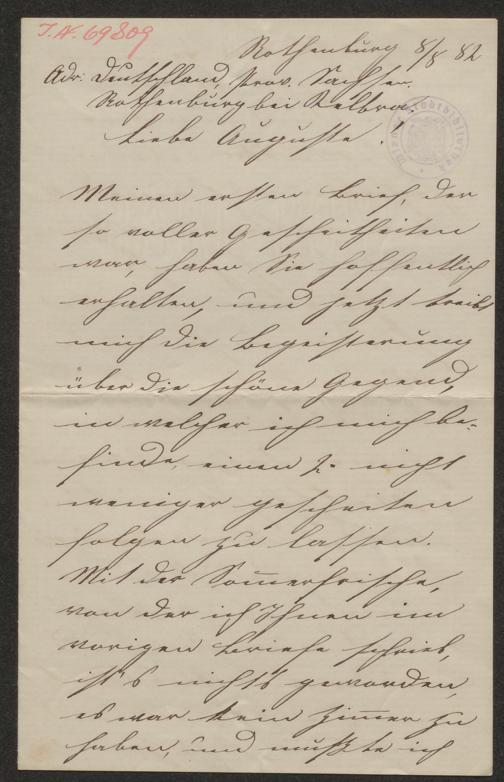 I.N. 69809
Rothenburg 8/8 82
Adr: Deutschland, Prov. Sachsen.
Rothenburg bei Kelbra.
Liebe Auguste!
Meinen ersten Brief, der
so voller Gescheitheiten
war, haben Sie hoffentlich
erhalten, und jetzt treibt
mich die Begeisterung
über die schöne Gegend,
in welcher ich mich be-
finde, einen 2. nicht
weniger gescheiten
folgen zu lassen.
Mit der Som̄erfrische,
von der ich Ihnen im
vorigen Briefe schrieb,
ist's nichts geworden,
es war kein Zim̄er zu
haben, und mußte ich